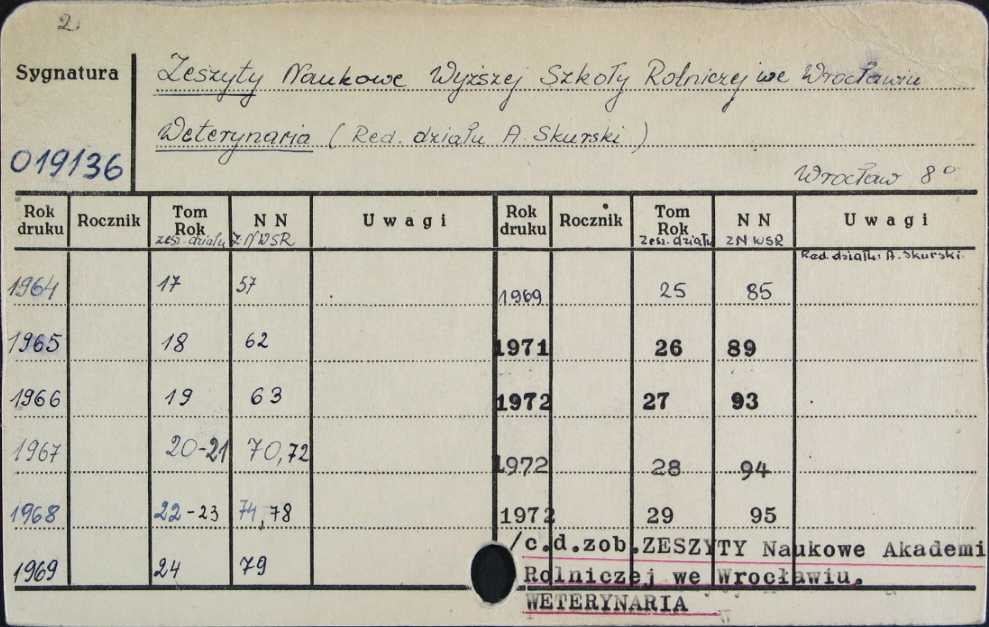 2.
Sygnatura
Zeszyty Naukowe Wyższej Szkoły Rolniczej we Wrocławiu
Weterynaria (Red. działu A. Skurski)
019136
Wrocław 8°
Rok druku Rocznik Tom Rok zesz. działu N N Z N WSR Uwagi Rok druku Rocznik Tom Rok Zesz. działu N N ZN WSR Uwagi
Red. działu: A. Skurski.
1964 17 57 1969 25 85
1965 18 62 1971 26 89
1966 19 63 1972 27 93
1967 20-21 70,72 1972 28 94
1968 22-23 74,78 1972 29 95
1969 24 79
/c.d.zob.ZESZYTY Naukowe Akademi
Rolniczej we Wrocławiu.
WETERYNARIA